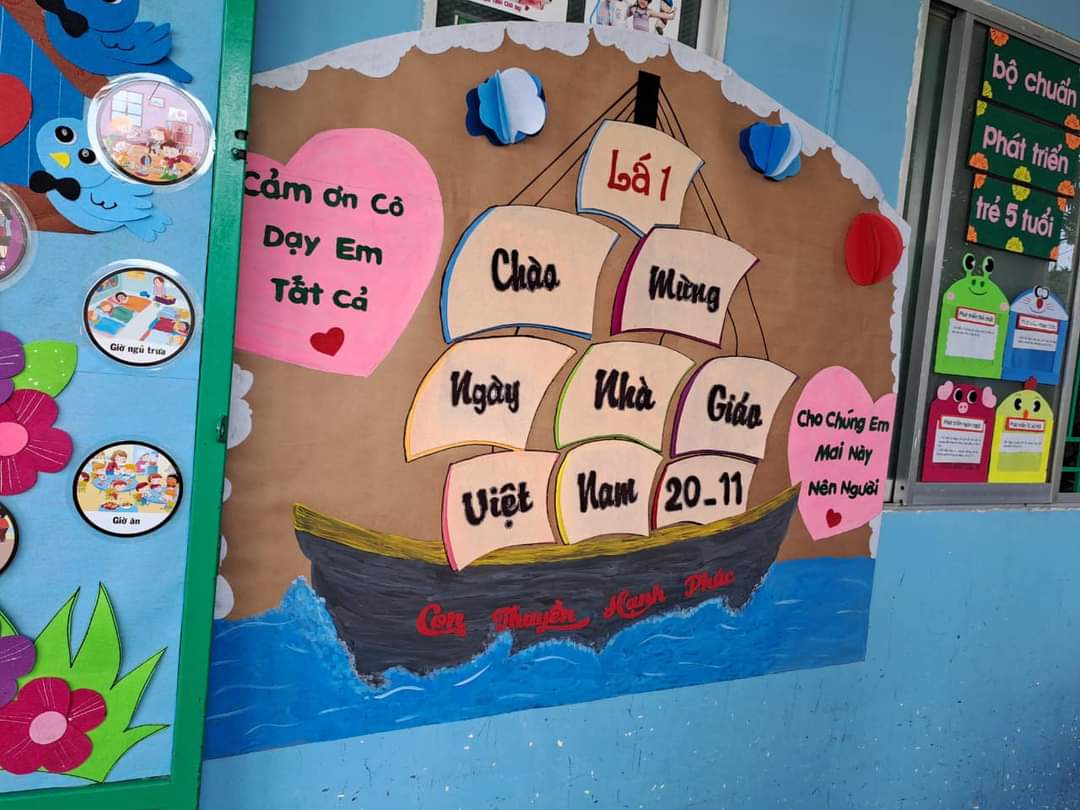 Cảm ơn Cô
Dạy Em
Tất cả
Lá 1
Chào Mừng
Ngày Nhà Giáo
Việt Nam 20-11
Con Thuyền Hạnh Phúc
Cho Chúng Em
Mai Này
Nên Người
Giờ ngủ trưa
Giờ ăn
bộ chuẩn
phát triển
trẻ 5 tuổi